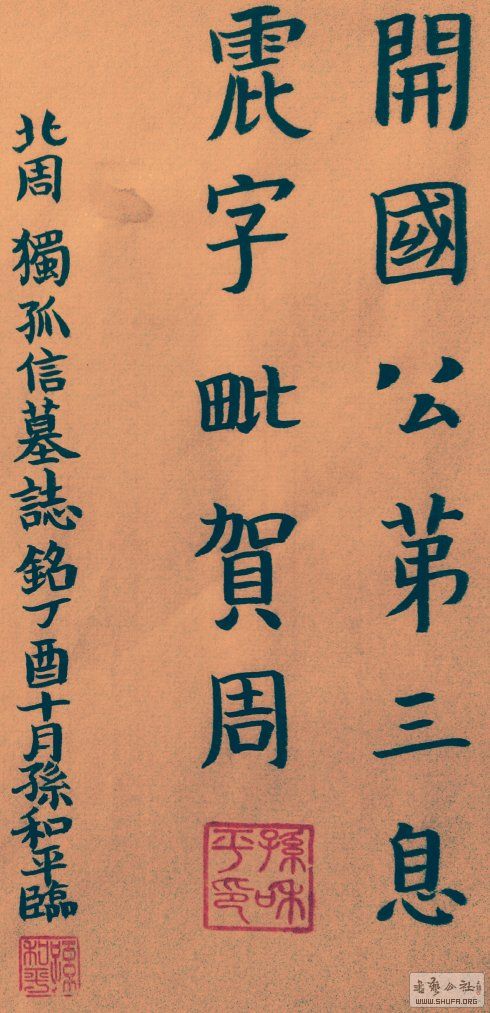 開國公苐三息
震字毗賀周
孫和平印
北周 獨孤信墓誌銘丁酉十月孫和平臨
孫和平
書藝公社
WWW.SHUFA.ORG